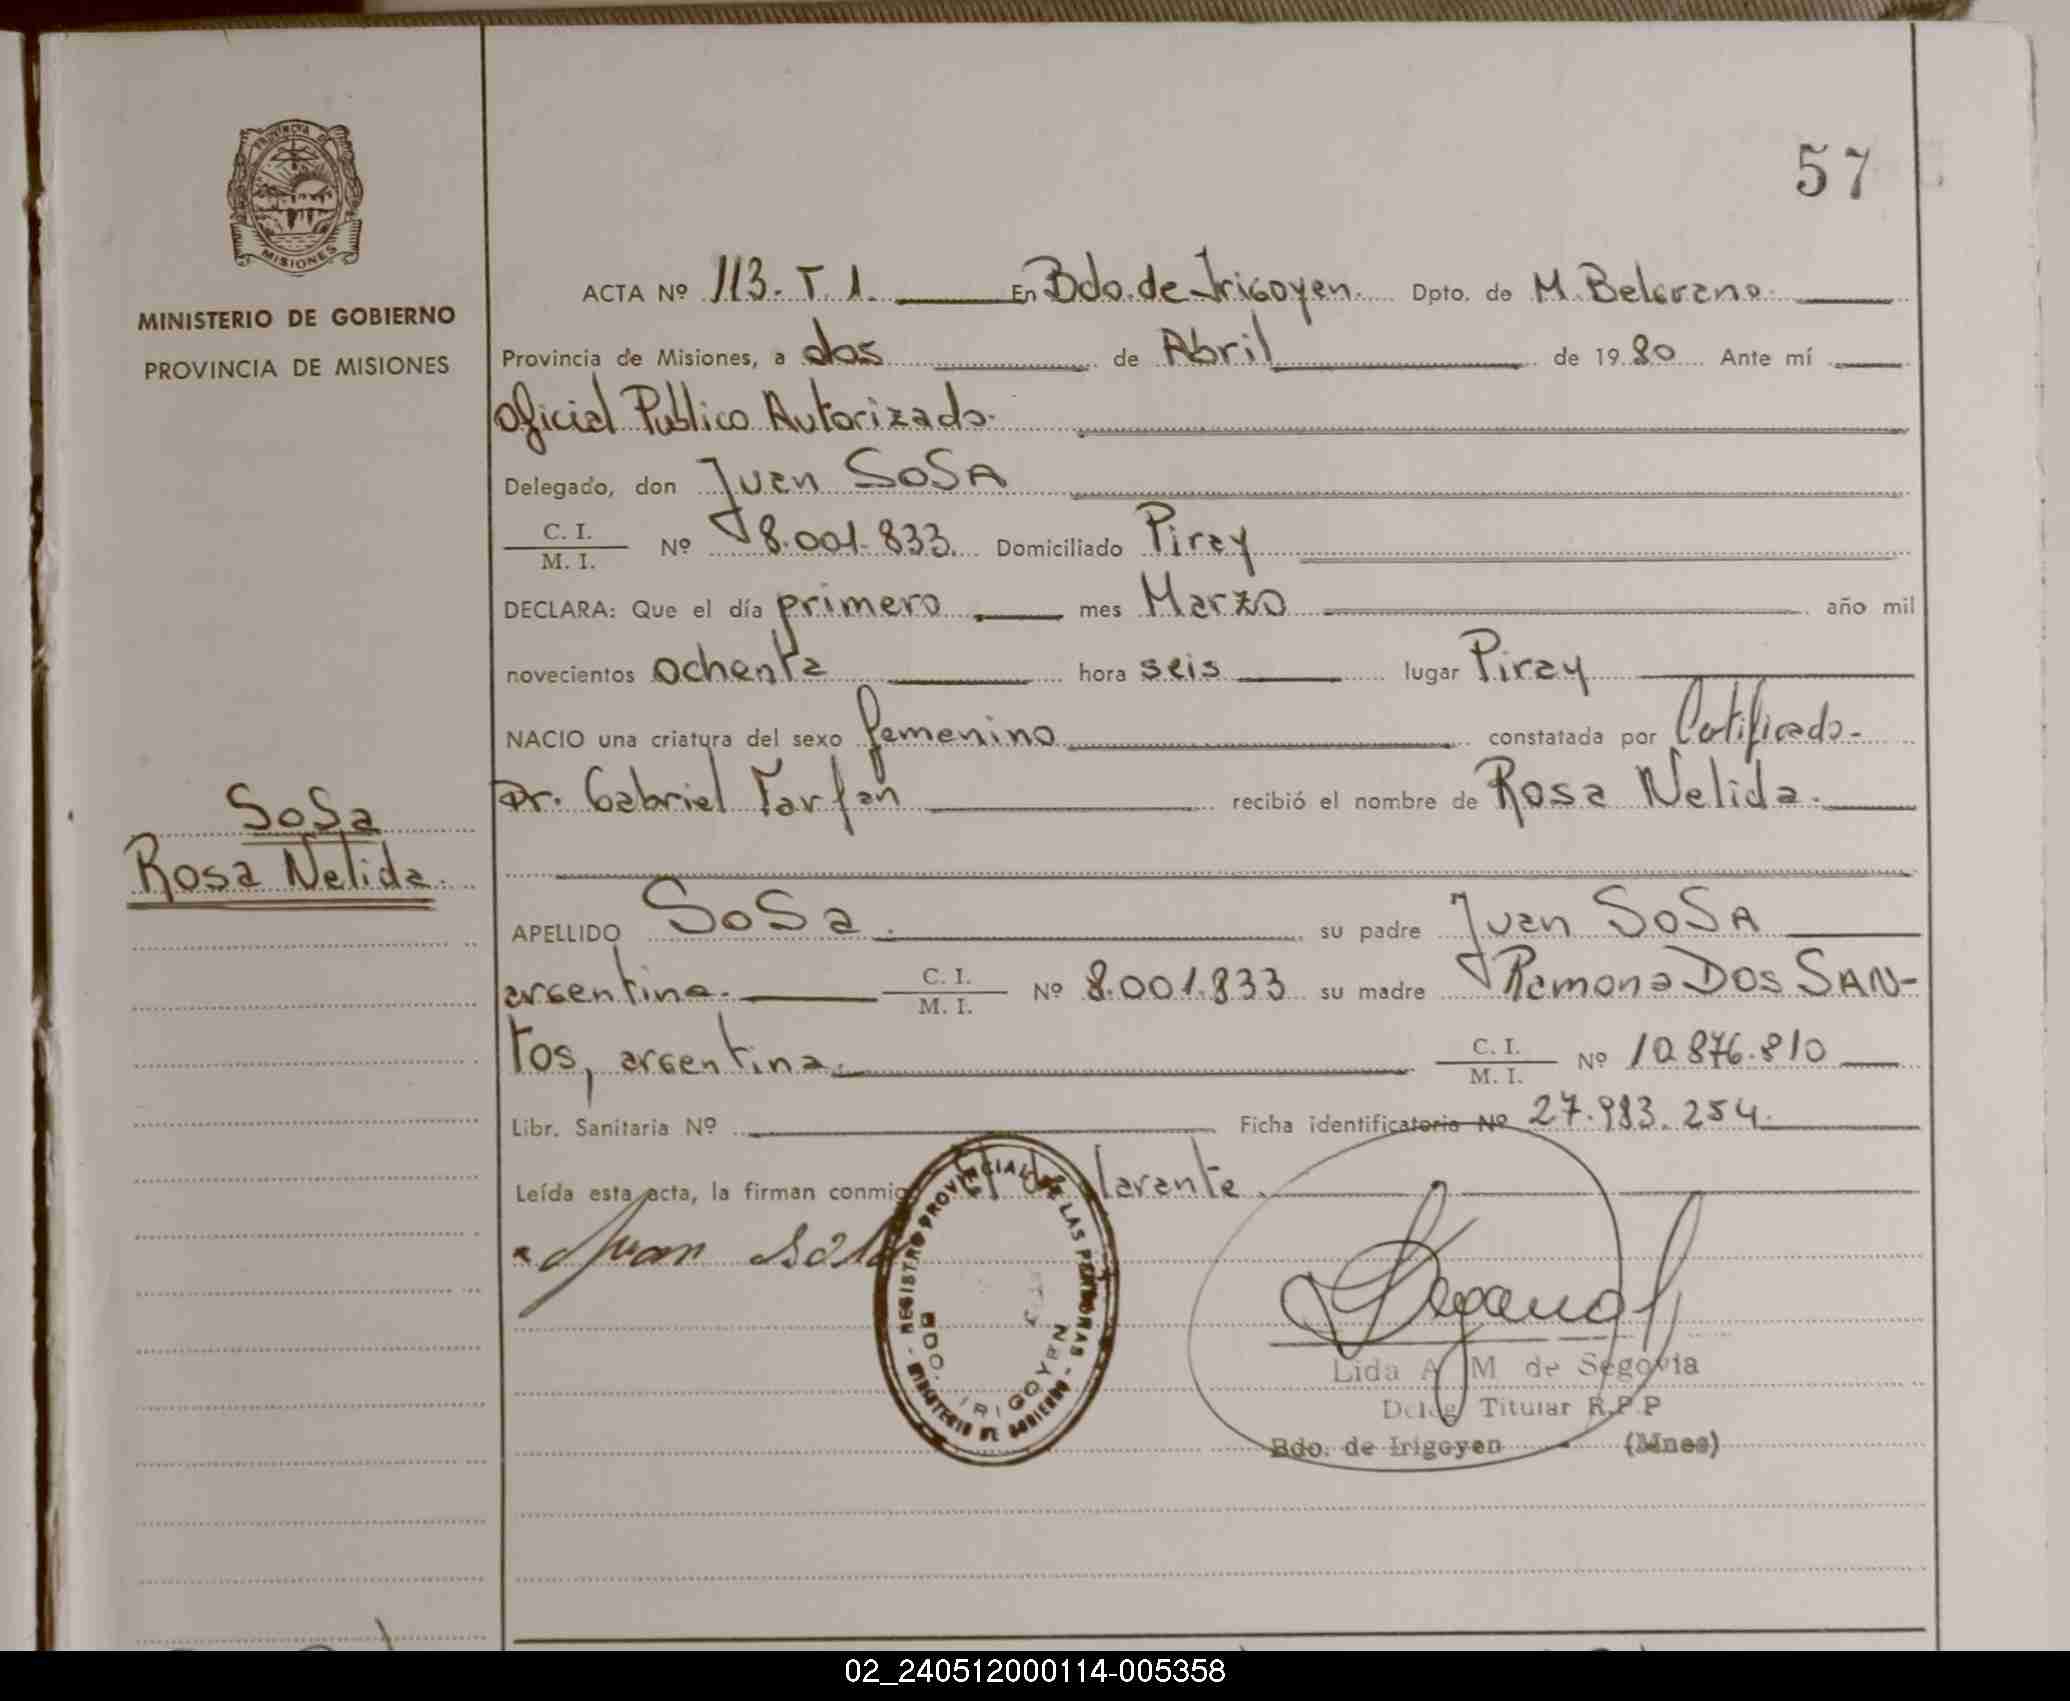 PROVINCIA DE
MISIONES
MINISTERIO DE GOBIERNO
PROVINCIA DE MISIONES
SoSa
Rosa Nelida.
57
ACTA Nº 113. T. 1. En Bdo. de Irigoyen. Dpto. de M. Belgrano.
Provincia de Misiones, a dos de Abril de 1980 Ante mí
Oficial Publico Autorizado.
Delegado, don Juan SoSA
C. I. / M. I. Nº 8.001.833. Domiciliado Piray
DECLARA: Que el día primero mes Marzo año mil
novecientos ochenta hora seis lugar Piray
NACIO una criatura del sexo femenino constatada por Certificado.
Dr. Gabriel Farfan recibió el nombre de Rosa Nelida.
APELLIDO SoSa. su padre Juan SoSA
argentino. C. I. / M. I. Nº 8.001.833 su madre Ramona DOS SAN-
TOS, argentina. C. I. / M. I. Nº 10.876.810
Libr. Sanitaria Nº Ficha identificatoria Nº 27.983.254.
Leída esta acta, la firman conmigo el declarante.
Juan Sosa
REGISTRO PROVINCIAL DE LAS PERSONAS - MINISTERIO DE GOBIERNO -
BDO. IRIGOYEN
Lida A M de Segovia
Deleg Titular R.P.P
Bdo. de Irigoyen - (Mnes)
02_240512000114-005358